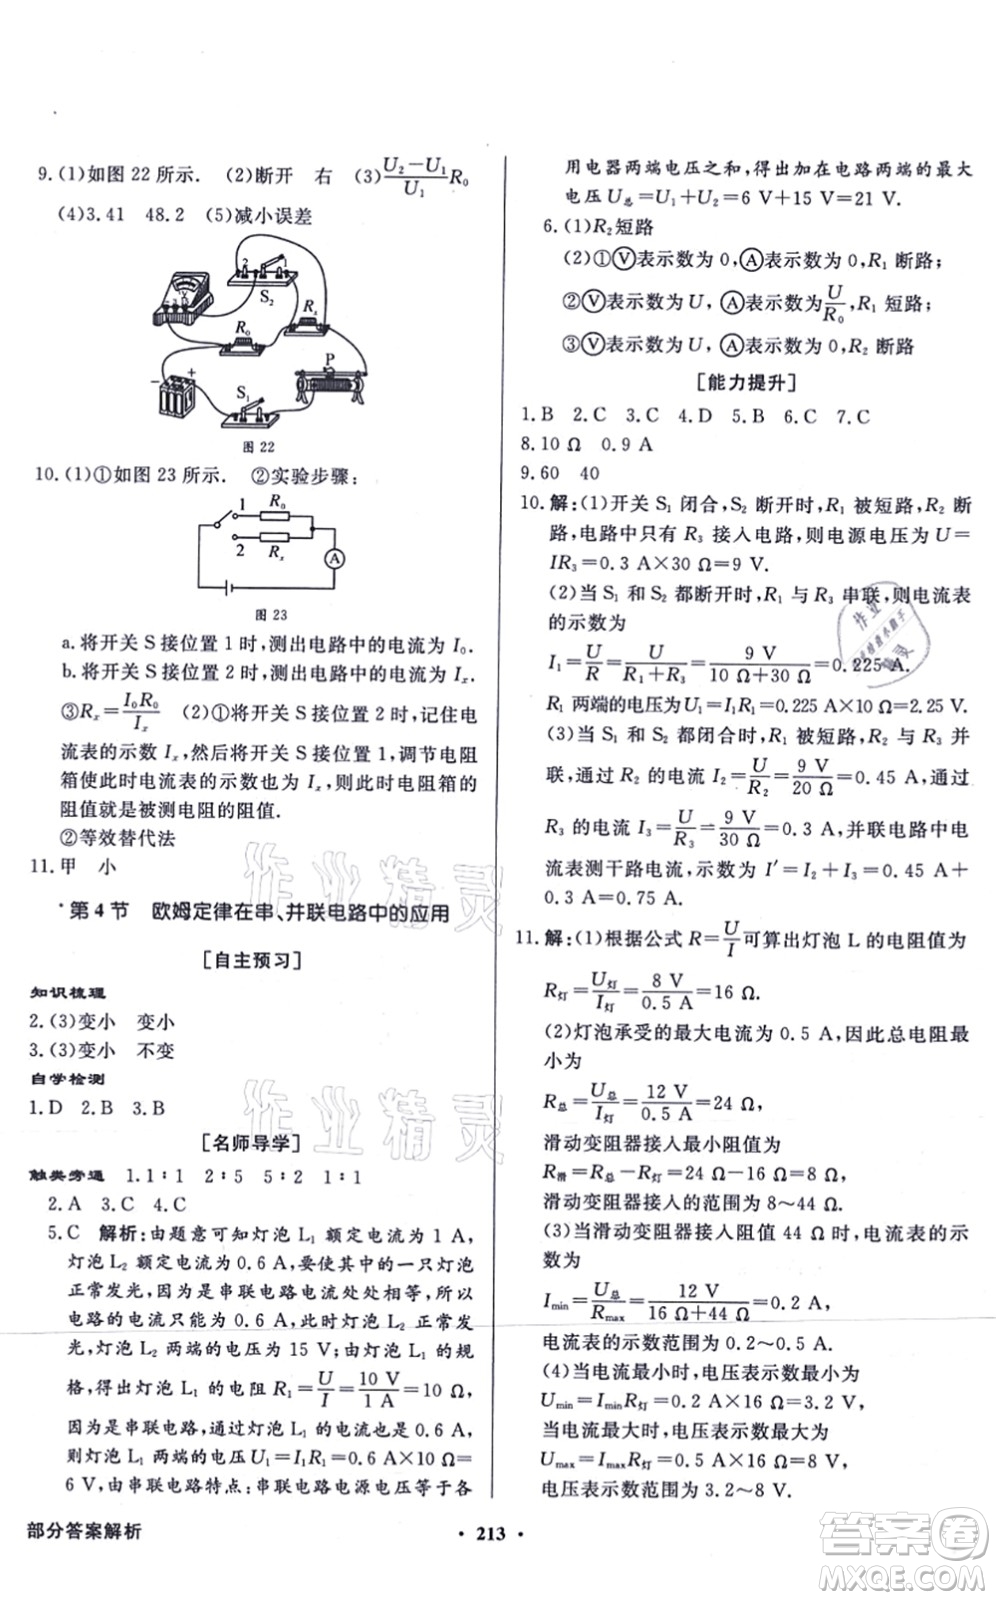 9.(1)如图 22 所示. (2)断开 右 (3)\frac{U_2-U_1}{U_1}R_0
(4)3.41 48.2 (5)减小误差
2 1
V
S_2
R_x
R_0
P
- +
S_1
图 22
10.(1)①如图 23 所示. ②实验步骤:
1 R_0
2 R_x
A
图 23
a.将开关 S 接位置 1 时,测出电路中的电流为 I_0.
b.将开关 S 接位置 2 时,测出电路中的电流为 I_x.
③R_x=\frac{I_0R_0}{I_x} (2)①将开关 S 接位置 2 时,记住电
流表的示数 I_x,然后将开关 S 接位置 1,调节电阻
箱使此时电流表的示数也为 I_x,则此时电阻箱的
阻值就是被测电阻的阻值.
②等效替代法
11.甲 小
*第 4 节 欧姆定律在串、并联电路中的应用
[自主预习]
知识梳理
2.(3)变小 变小
3.(3)变小 不变
自学检测
1.D 2.B 3.B
[名师导学]
触类旁通 1.1∶1 2∶5 5∶2 1∶1
2.A 3.C 4.C
5.C 解析:由题意可知灯泡 L_1 额定电流为 1 A,
灯泡 L_2 额定电流为 0.6 A,其中的一只灯泡
正常发光,因为串联电路电流处处相等,所以
电路的电流只能为 0.6 A,此时灯泡 L_2 正常发
光,灯泡 L_2 两端的电压为 15 V;根据灯泡 L_1 的规
格,得出灯泡 L_1 的电阻 R_1=\frac{U}{I}=\frac{10 V}{1 A}=10 Ω,
因为是串联电路,通过灯泡 L_1 的电流为 0.6 A,
则灯泡 L_1 两端的电压 U_1=I_1R_1=0.6 A×10 Ω=
6 V,由串联电路特点:串联电路电源电压等于各
用电器两端电压之和,得出加在电路两端的最大
电压 U_总=U_1+U_2=6 V+15 V=21 V.
6.(1)R_2短路
(2)①Ⓥ表示数为 0,Ⓐ表示数为 0,R_1 断路;
②Ⓥ表示数为 U,Ⓐ表示数为\frac{U}{R_0},R_1 短路;
③Ⓥ表示数为 U,Ⓐ表示数为 0,R_2 断路
[能力提升]
1.B 2.C 3.C 4.D 5.B 6.C 7.C
8.10 Ω 0.9 A
9.60 40
10.解:(1)开关 S_1 闭合,S_2 断开时,R_1 被短路,R_2 断
路,电路中只有 R_3 接入电路,则电源电压为 U=
IR_3=0.3 A×30 Ω=9 V.
(2)当 S_1 和 S_2 都断开时,R_1 与 R_3 串联,则电流表
的示数为
I_1=\frac{U}{R}=\frac{U}{R_1+R_3}=\frac{9 V}{10 Ω+30 Ω}=0.225 A.
R_1 两端的电压为 U_1=I_1R_1=0.225 A×10 Ω=2.25 V.
(3)当 S_1 和 S_2 都闭合时,R_1 被短路,R_2 与 R_3 并
联,通过 R_2 的电流 I_2=\frac{U}{R_2}=\frac{9 V}{20 Ω}=0.45 A,通过
R_3 的电流 I_3=\frac{U}{R_3}=\frac{9 V}{30 Ω}=0.3 A,并联电路中电
流表测干路电流,示数为 I′=I_2+I_3=0.45 A+0.3
A=0.75 A.
11.解:(1)根据公式 R=\frac{U}{I}可算出灯泡 L 的电阻值为
R_灯=\frac{U_灯}{I_灯}=\frac{8 V}{0.5 A}=16 Ω.
(2)灯泡承受的最大电流为 0.5 A,因此总电阻最
小为
R_总=\frac{U_总}{I_灯}=\frac{12 V}{0.5 A}=24 Ω,
滑动变阻器接入最小阻值为
R_滑=R_总-R_灯=24 Ω-16 Ω=8 Ω,
滑动变阻器接入的范围为 8~44 Ω.
(3)当滑动变阻器接入阻值 44 Ω时,电流表的示
数为
I_min=\frac{U_总}{R_max}=\frac{12 V}{16 Ω+44 Ω}=0.2 A,
电流表的示数范围为 0.2~0.5 A.
(4)当电流最小时,电压表示数最小为
U_min=I_minR_灯=0.2 A×16 Ω=3.2 V,
当电流最大时,电压表示数最大为
U_max=I_maxR_灯=0.5 A×16 Ω=8 V,
电压表示数范围为 3.2~8 V.
部分答案解析
· 213 ·
作业精灵
作业精灵
答案卷
MXQE.COM